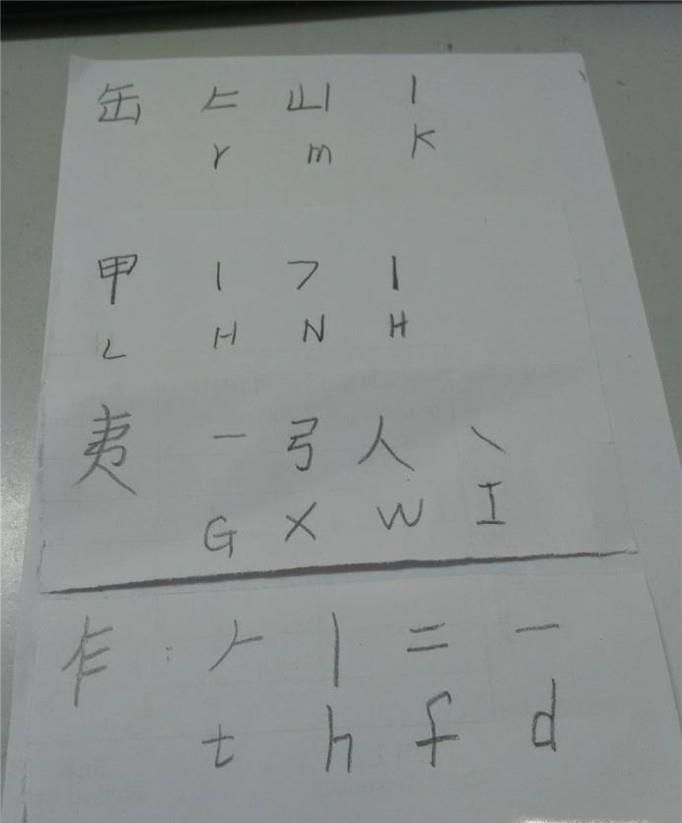 缶 𠂉 山 丨
r m K
甲 丨 ㇇ 丨
L H N H
夷 一 弓 人 ㇏
G X W I
乍 : 𠂉 丨 二 一
t h f d